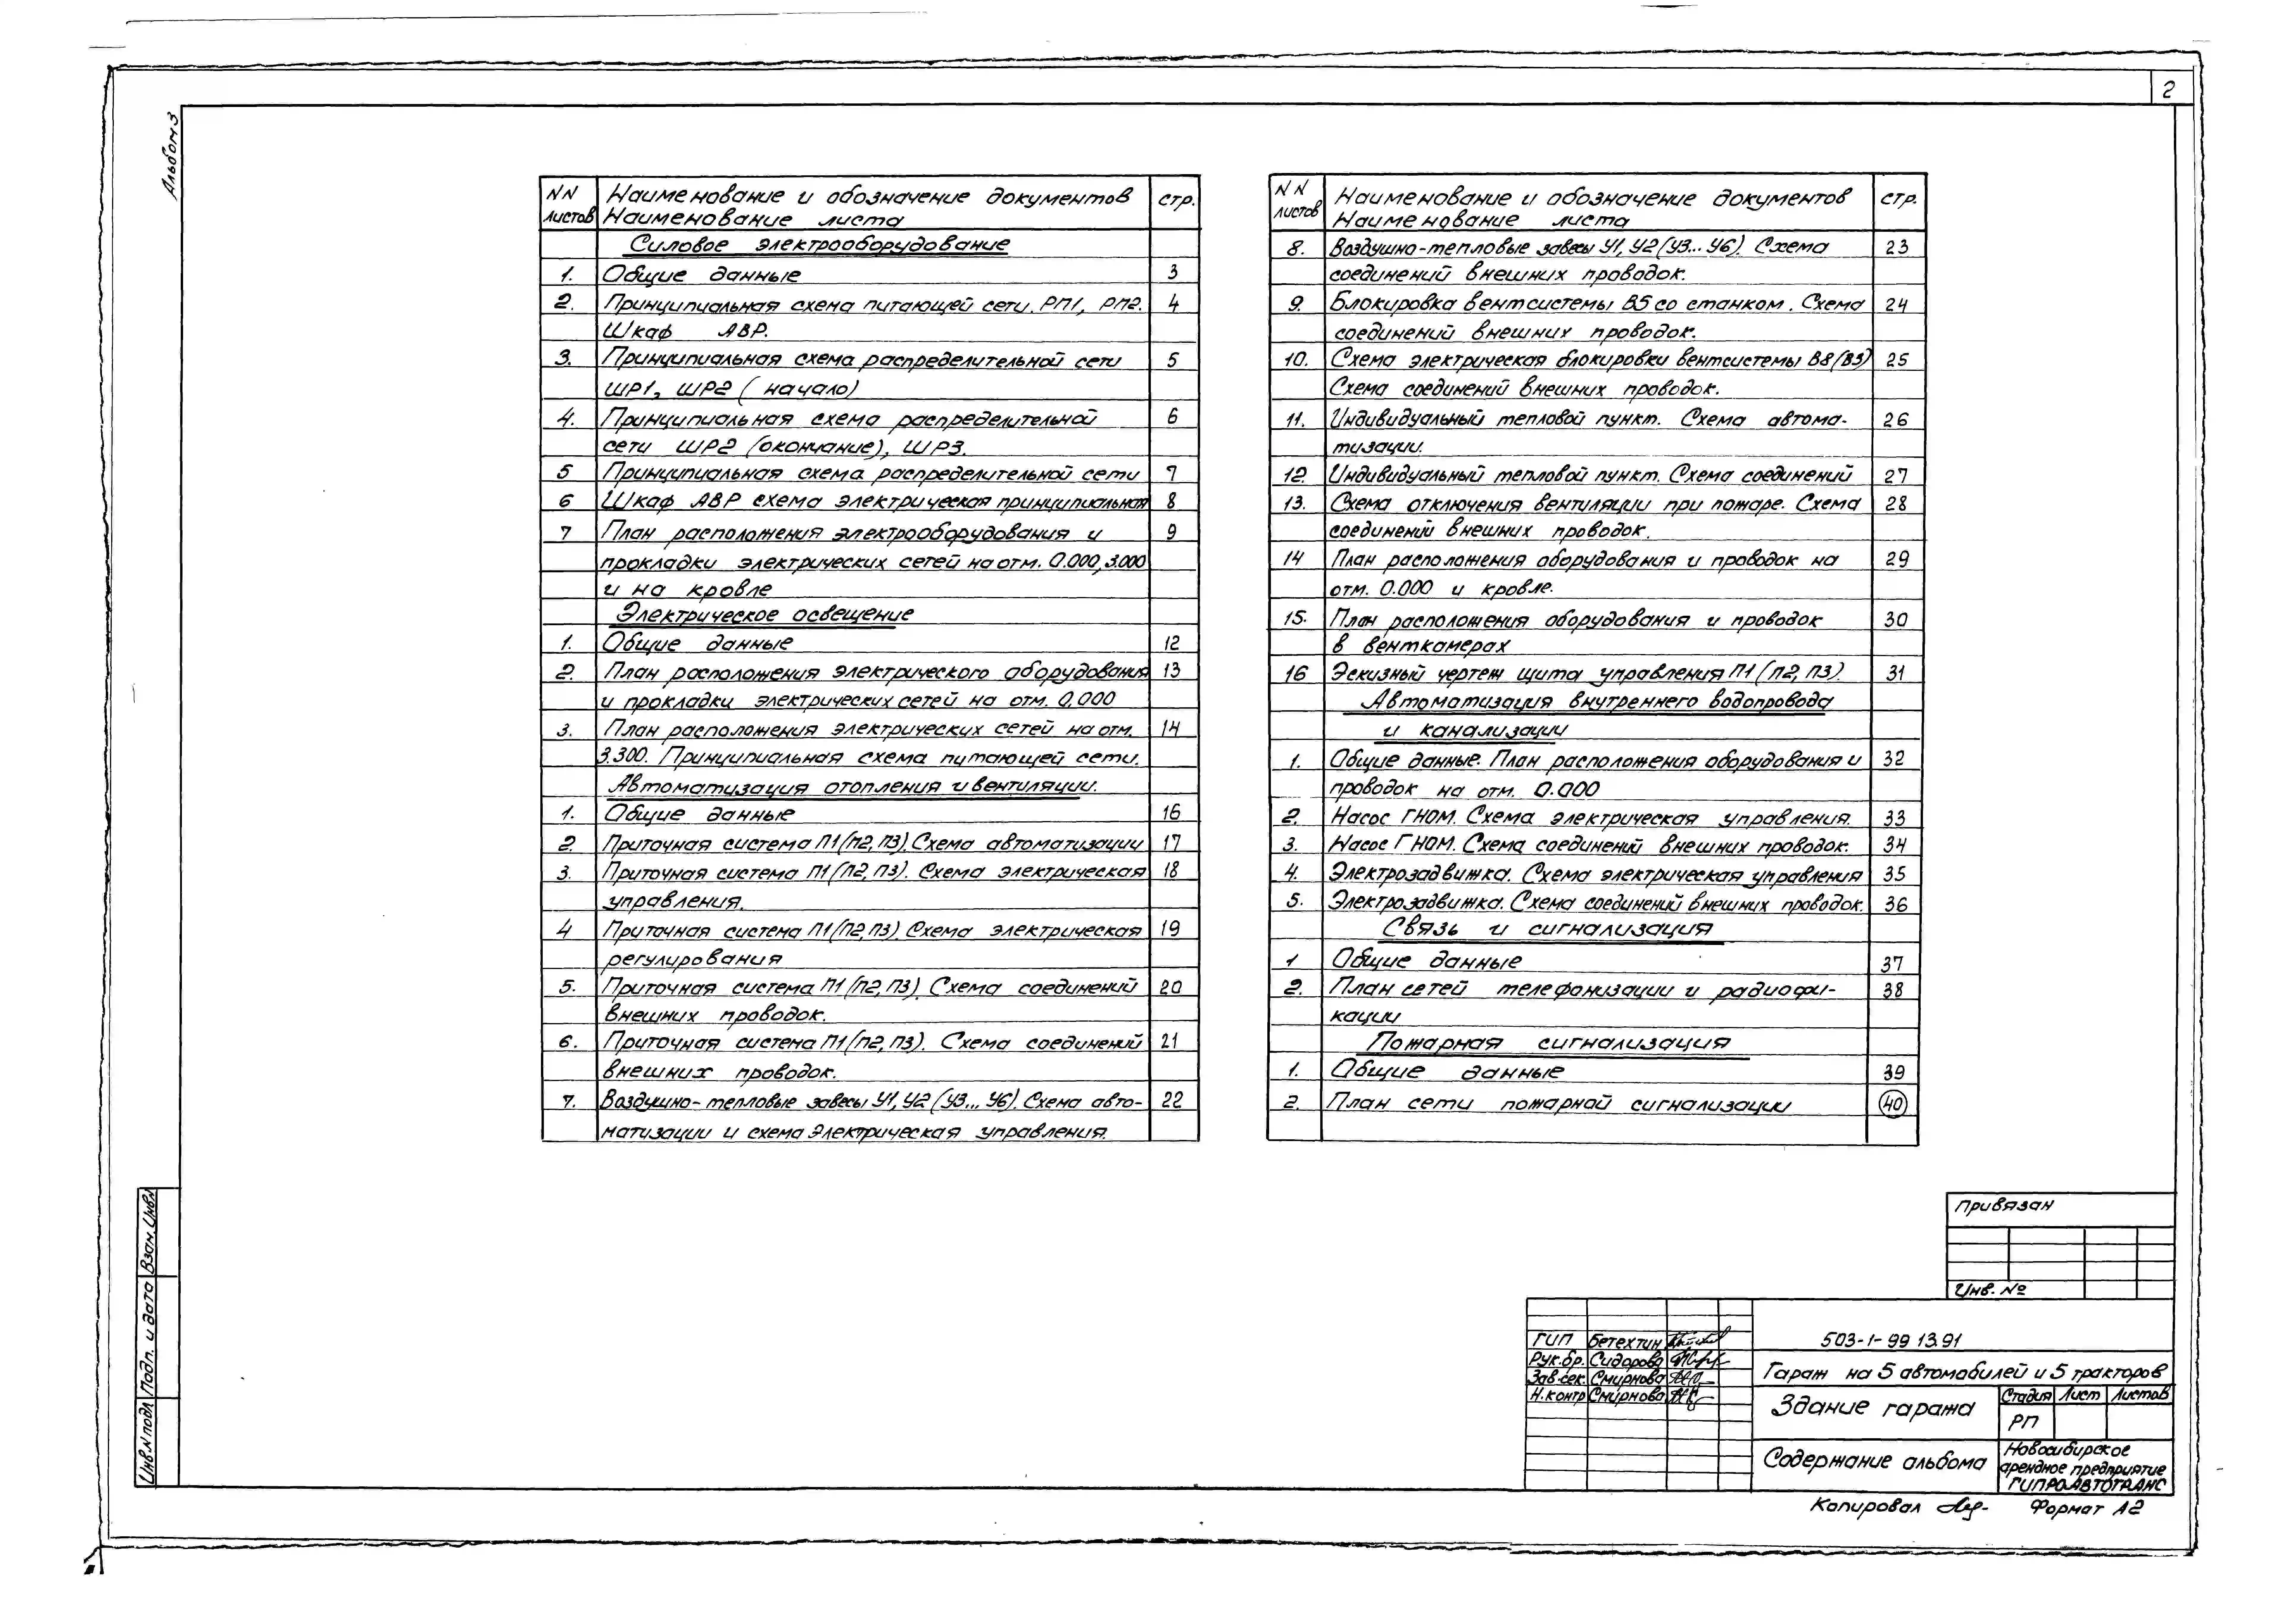 2
Альбом 3
NN листов Наименование и обозначение документов Наименование листа стр.
Силовое электрооборудование
1. Общие данные 3
2. Принципиальная схема питающей сети. РП1, РП2. 4
Шкаф АВР.
3. Принципиальная схема распределительной сети 5
ШР1, ШР2 ( начало)
4. Принципиальная схема распределительной 6
сети ШР2 (окончание), ШР3.
5 Принципиальная схема распределительной сети 7
6 Шкаф АВР схема электрическая принципиальная 8
7 План расположения электрооборудования и 9
прокладки электрических сетей на отм. 0.000, 3.000
и на кровле
Электрическое освещение
1. Общие данные 12
2. План расположения электрического оборудования 13
и прокладки электрических сетей на отм. 0.000
3. План расположения электрических сетей на отм. 14
3.300. Принципиальная схема питающей сети.
Автоматизация отопления и вентиляции.
1. Общие данные 16
2. Приточная система П1(П2, П3). Схема автоматизации 17
3. Приточная система П1(П2, П3). Схема электрическая 18
управления.
4 Приточная система П1(П2, П3). Схема электрическая 19
регулирования
5. Приточная система П1(П2, П3). Схема соединений 20
внешних проводок.
6. Приточная система П1(П2, П3). Схема соединений 21
внешних проводок.
7. Воздушно-тепловые завесы У1, У2 (У3... У6). Схема авто- 22
матизации и схема электрическая управления.
NN листов Наименование и обозначение документов Наименование листа стр.
8. Воздушно-тепловые завесы У1, У2 (У3... У6). Схема 23
соединений внешних проводок.
9. Блокировка вентсистемы В5 со станком. Схема 24
соединений внешних проводок.
10. Схема электрическая блокировки вентсистемы В8(В3) 25
Схема соединений внешних проводок.
11. Индивидуальный тепловой пункт. Схема автома- 26
тизации.
12 Индивидуальный тепловой пункт. Схема соединений 27
13. Схема отключения вентиляции при пожаре. Схема 28
соединений внешних проводок.
14 План расположения оборудования и проводок на 29
отм. 0.000 и кровле.
15. План расположения оборудования и проводок 30
в венткамерах
16 Эскизный чертеж щита управления П1(П2, П3). 31
Автоматизация внутреннего водопровода
и канализации
1. Общие данные. План расположения оборудования и 32
проводок на отм. 0.000
2. Насос ГНОМ. Схема электрическая управления. 33
3. Насос ГНОМ. Схема соединений внешних проводок. 34
4. Электрозадвижка. Схема электрическая управления 35
5. Электрозадвижка. Схема соединений внешних проводок. 36
Связь и сигнализация
1 Общие данные 37
2. План сетей телефонизации и радиофи- 38
кации
Пожарная сигнализация
1. Общие данные 39
2. План сети пожарной сигнализации 40
Инв.N подл Подп. и дата Взам. Инв.N
Привязан
Инв. №
ГИП Бетехтин
Рук.бр. Сидорова
Зав.сек. Смирнова
Н.контр Смирнова
503-1-99 13.91
Гараж на 5 автомобилей и 5 тракторов
Здание гаража
Стадия Лист Листов
РП
Содержание альбома
Новосибирское
арендное предприятие
ГИПРОАВТОТРАНС
Копировал Формат А2